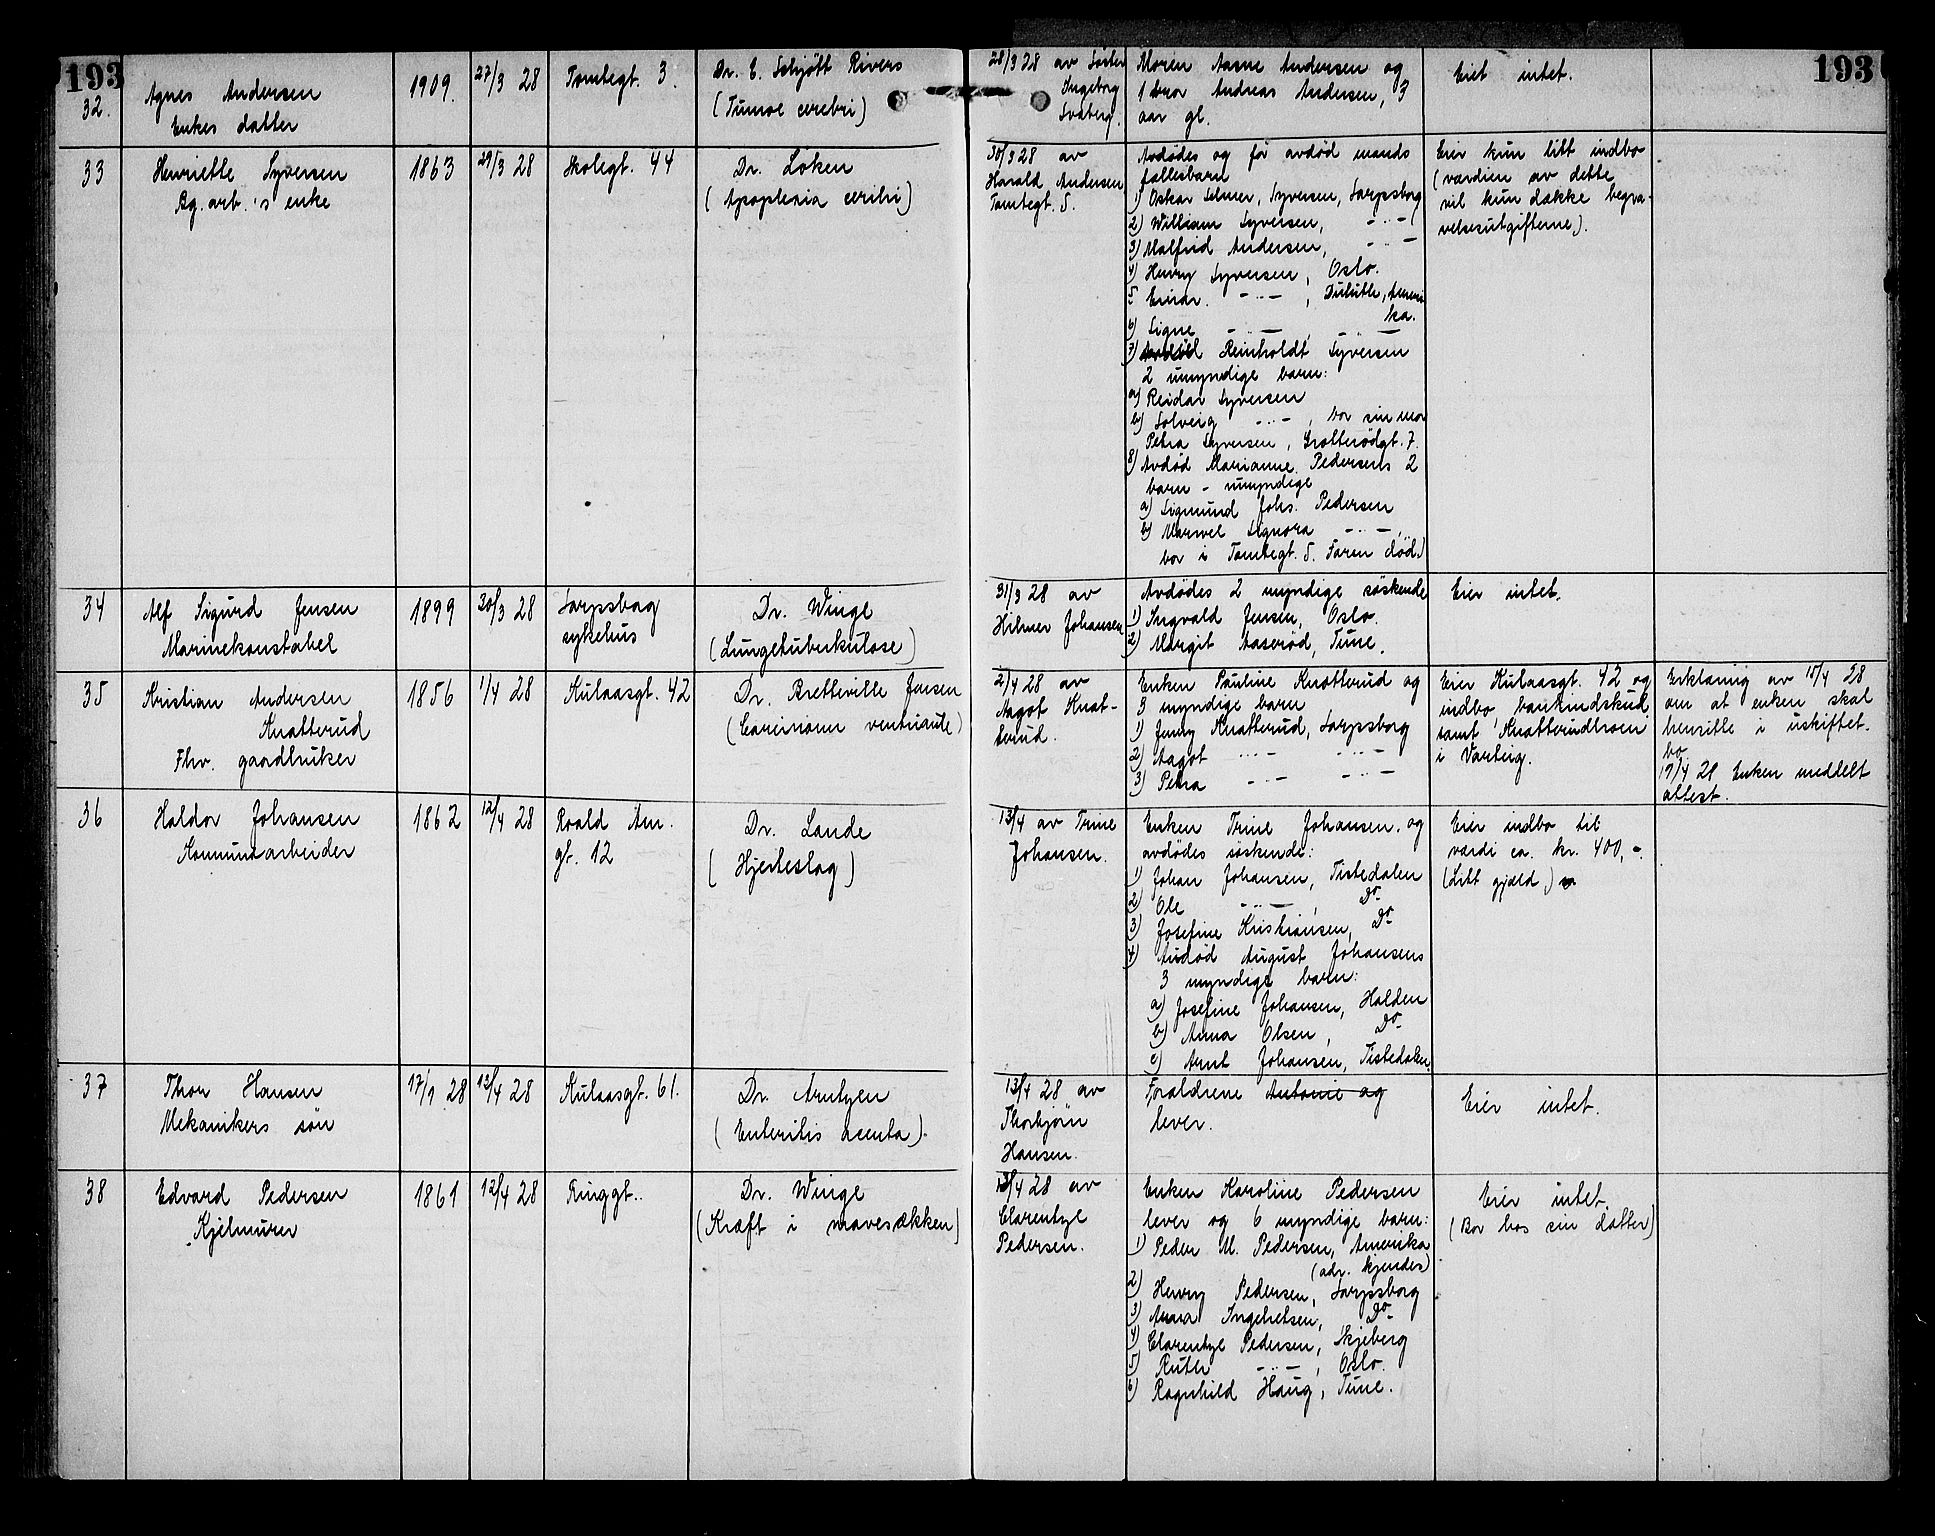 193
193
32.
Agnes Andersen
Enkes datter
1909.
27/3 28
Tomtegt. 3.
Dr. E. Schjött Rivers
(Tumor cerebri)
28/3 28 av Søster
Ingeborg
Svaberg.
Moren Aasne Andersen og
1 bror Andreas Andersen, 3
aar gl.
Eiet intet.
33
Henriette Syversen
Bg. arb.'s enke
1863
29/3 28
Skolegt. 44
Dr. Løken
(Apoplexia ceribri)
30/3 28 av
Harald Andersen
Tomtegt. 5.
Avdødes og før avdød mands
fællesbarn
1) Oskar Selmer, Syversen, Sarpsborg
2) William Syversen, -..-
3) Valfrid Andersen, -..-
4) Henry Syversen, Oslo.
5 Einar. -..- , Duluth, Ameri
ka.
6) Signe -..- -..-
7) Reinholdt Syversen
2 umyndige barn:
a) Reidar Syversen
b) Solveig -..- , bor sin mor
Petra Syversen, Grotterødgt. 7.
8) Avdød Marianne Pedersens 2
barn - umyndige
a) Sigmund Johs. Pedersen
b) Marvel Signora -..-,
bor i Tomtegt. 5. Faren død.)
Eier kun litt indbo
(værdien av dette
vil kun dække begra-
velsesutgifterne).
34
Alf Sigurd Jensen
Marinekonstabel
1899
30/3 28
Sarpsborg
sykehus
Dr. Winge
(Lungetuberkulose)
31/3 28 av
Hilmer Johansen
Avdødes 2 myndige søskende
1) Ingvald Jensen, Oslo.
2) Margit Aaserød, Tune.
Eier intet.
35
Kristian Andersen
Knatterud
Fhv. gaardbruker
1856
1/4 28
Kulaasgt. 42
Dr. Bretteville Jensen
(Carcinom ventriculi)
2/4 28 av
Aagot Knat-
terud.
Enken Pauline Knatterud og
3 myndige barn
1) Jenny Knatterud, Sarpsborg
2) Aagot -..- -..-
3) Petra -..- -..-
Eier Kulaasgt. 42 og
indbo, bankindskud
samt Knatterudtroen
i Varteig.
Erklæring av 15/4 28
om at enken skal
hensitte i uskiftet.
bo
17/4 28 Enken meddelt
attest.
36
Haldor Johansen
Kommunearbeider
1862
12/4 28
Roald Am.
gt. 12
Dr. Lande
(Hjerteslag)
13/4 av Trine
Johansen.
Enken Trine Johansen. og
avdødes søskende:
1) Johan Johansen, Tistedalen
2) Ole -..- , Do
3) Josefine Kristiansen, Do
4) Avdød August Johansens
3 myndige barn:
a) Josefine Johansen, Halden
b) Anna Olsen, Do
c) Arnt Johansen, Tistedalen.
Eier indbo til
værdi ca. kr. 400,-.
(Litt gjæld)
37
Thor Hansen
Mekanikers søn
17/1 28
12/4 28
Kulaasgt. 61.
Dr. Arntzen
(Enteritis acuta).
13/4 28 av
Thorbjørn
Hansen.
Forældrene Antonie og
lever.
Eier intet.
38
Edvard Pedersen
Kjelmurer
1861
12/4 28
Ringgt..
Dr. Winge
(Kræft i mavesækken)
13/4 28 av
Clarentze
Pedersen.
Enken Karoline Pedersen
lever og 6 myndige barn:
1) Peder M. Pedersen, Amerika
(adr. kjendes)
2) Henry Pedersen, Sarpsborg
3) Anna Ingebretsen, Do
4) Clarentze Pedersen, Skjeberg
5) Ruth -..- , Oslo.
6) Ragnhild Haug, Tune.
Eier intet.
(Bor hos sin datter)